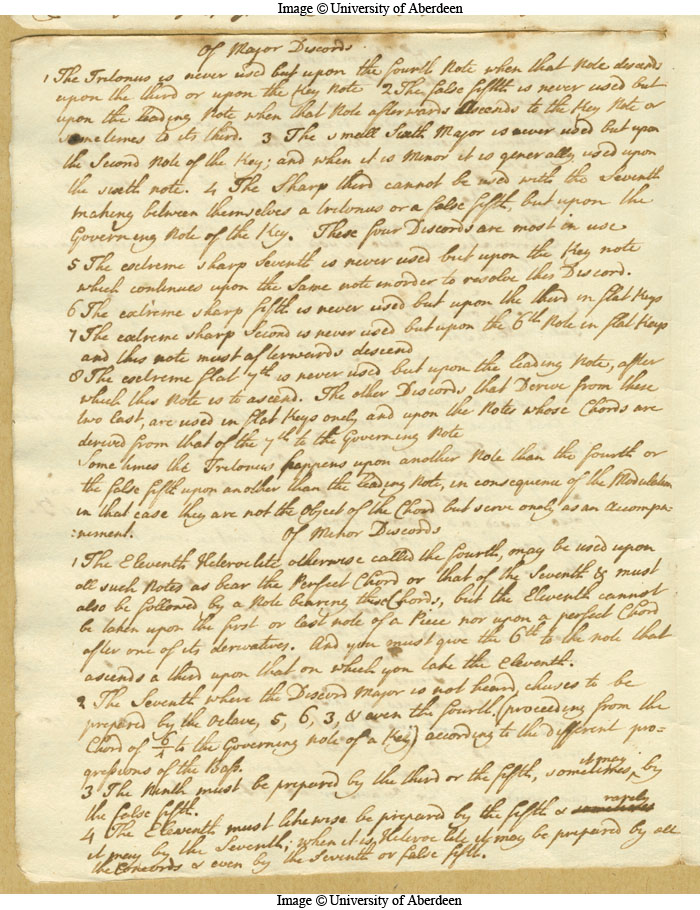 Image © University of Aberdeen
Of Major Discords
1 The Tritonus is never used but upon the fourth Note when that Note descends
upon the third or upon the Key Note 2 The false fifth is never used but
upon the leading Note when that Note afterwards ascends to the Key Note or
sometimes to its third. 3 The small Sixth Major is never used but upon
the Second Note of the Key; and when it is Minor it is generally used upon
the sixth note. 4 The Sharp third cannot be used with the Seventh
making between themselves a tritonus or a false fifth, but upon the
Governing Note of the Key. These four Discords are most in use
5 The esctreme sharp Seventh is never used but upon the Key note
which continues upon the Same note inorder to resolve this Discord.
6 The extreme sharp fifth is never used but upon the third in flat Keys
7 The extreme sharp Second is never used but upon the 6th Note in flat Keys
and this note must afterwards descend
8 The esctreme flat 7th is never used but upon the leading Note, after
which this Note is to ascend. The other Discords that Derive from these
two last, are used in flat Keys onely and upon the Notes whose Chords are
derived from that of the 7th to the Governing Note
Sometimes the Tritonus happens upon another Note than the fourth or
the false fifth upon another than the leading Note, in consequence of the Modulation
in that case they are not the Object of the Chord but serve onely as an Accompa-
:niment.
Of Minor Discords
1 The Eleventh Heteroclite, otherwise called the fourth, may be used upon
all such Notes as bear the Perfect Chord or that of the Seventh & must
also be followed by a Note bearing these Chords, but the Eleventh cannot
be taken upon the first or last note of a Piece nor upon a perfect Chord
after one of its derivatives. And you must give the 6th to the note that
ascends a third upon that on which you take the Eleventh.
2 The Seventh where the Discord Major is not heard, chuses to be
prepared by the Octave, 5, 6, 3, & even the fourth (proceeding from the
Chord of 6/4 to the Governing note of a Key) according to the different pro-
gressions of the Bass.
3 The Ninth must be prepared by the third or the fifth, sometimes it may, by
the false fifth.
4 The Eleventh must likewise be prepared by the fifth & sometimes rarely
it may by the Seventh; when it is Heteroclite it may be prepared by all
the Concords & even by the Seventh or false fifth.
Image © University of Aberdeen